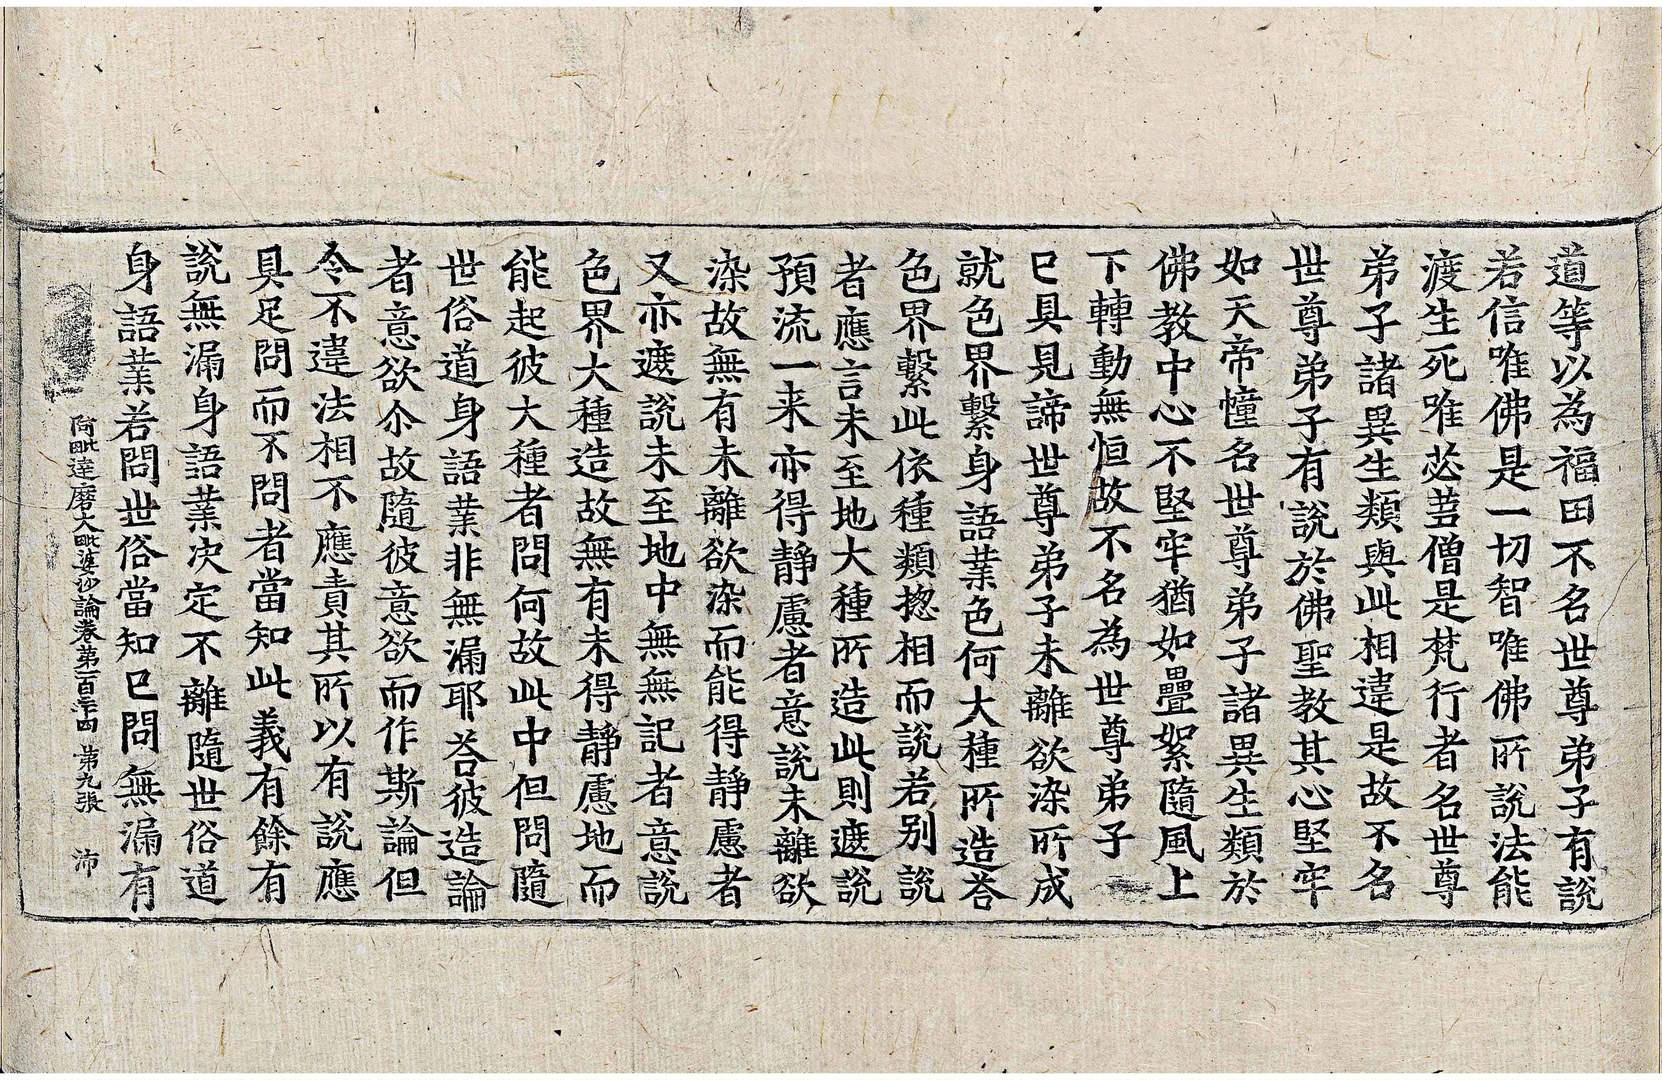 道等以為福田不名世尊弟子有說
若信唯佛是一切智唯佛所說法能
渡生死唯苾蒭僧是梵行者名世尊
弟子諸異生類與此相違是故不名
世尊弟子有說於佛聖教其心堅牢
如天帝幢名世尊弟子諸異生類於
佛教中心不堅牢猶如疊絮隨風上
下轉動無恒故不名為世尊弟子
已具見諦世尊弟子未離欲染所成
就色界繫身語業色何大種所造荅
色界繫此依種類揔相而說若別說
者應言未至地大種所造此則遮說
預流一来亦得靜慮者意說未離欲
染故無有未離欲染而能得靜慮者
又亦遮說未至地中無無記者意說
色界大種造故無有未得靜慮地而
能起彼大種者問何故此中但問隨
世俗道身語業非無漏耶荅彼造論
者意欲尒故隨彼意欲而作斯論但
令不違法相不應責其所以有說應
具足問而不問者當知此義有餘有
說無漏身語業決定不離隨世俗道
身語業若問世俗當知已問無漏有
阿毗達磨大毗婆沙論卷第一百三十四 第九張 沛